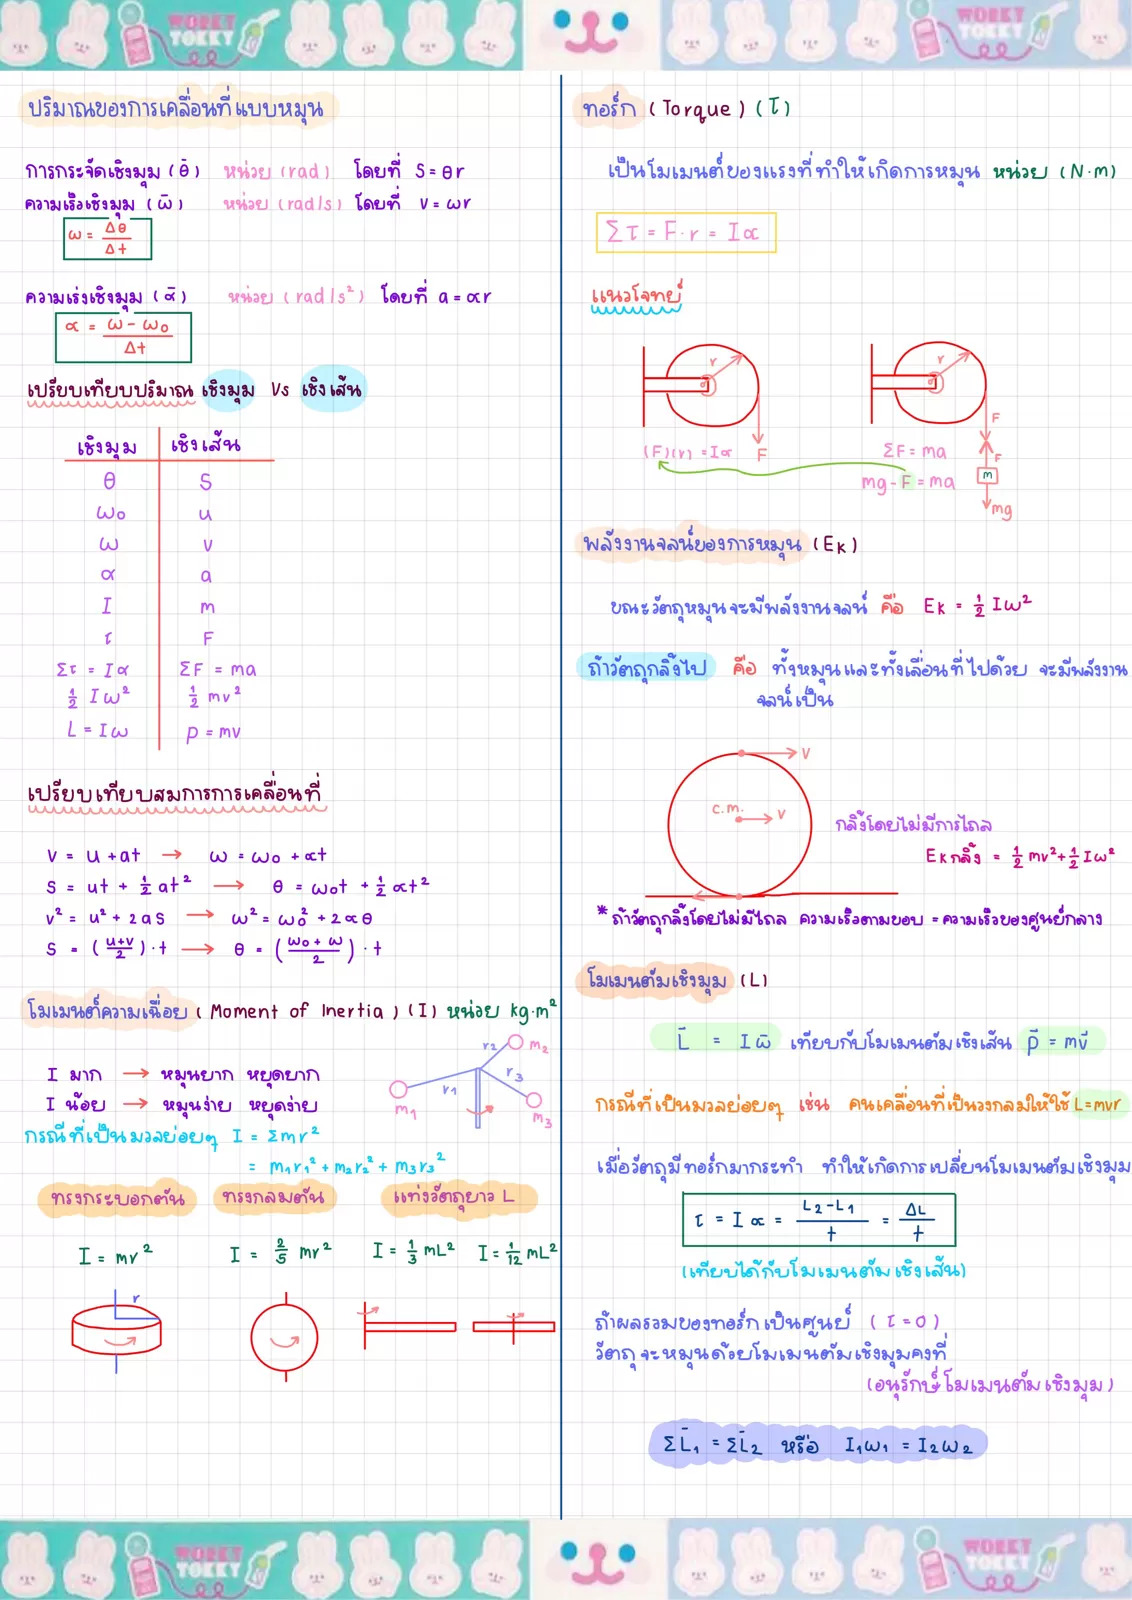 WORKY TOKKY
WORKY TOKKY
ปริมาณของการเคลื่อนที่แบบหมุน
การกระจัดเชิงมุม (θ̄) หน่วย (rad) โดยที่ S = θr
ความเร็วเชิงมุม (ω̄) หน่วย (rad/s) โดยที่ v = ωr
ω = Δθ/Δt
ความเร่งเชิงมุม (ᾱ) หน่วย (rad/s²) โดยที่ a = αr
α = (ω - ω₀)/Δt
เปรียบเทียบปริมาณ เชิงมุม Vs เชิงเส้น
เชิงมุม เชิงเส้น
θ S
ω₀ u
ω v
α a
I m
τ F
Στ = Iα ΣF = ma
½ Iω² ½ mv²
L = Iω p = mv
เปรียบเทียบสมการการเคลื่อนที่
v = u + at → ω = ω₀ + αt
S = ut + ½ at² → θ = ω₀t + ½ αt²
v² = u² + 2as → ω² = ω₀² + 2αθ
S = ((u+v)/2)·t → θ = ((ω₀ + ω)/2)·t
โมเมนต์ความเฉื่อย (Moment of Inertia) (I) หน่วย kg·m²
I มาก → หมุนยาก หยุดยาก
I น้อย → หมุนง่าย หยุดง่าย
r₁ r₂ r₃ m₁ m₂ m₃
กรณีที่เป็นมวลย่อยๆ I = Σmr²
= m₁r₁² + m₂r₂² + m₃r₃²
ทรงกระบอกตัน ทรงกลมตัน แท่งวัตถุยาว L
I = mr² I = 2/5 mr² I = 1/3 mL² I = 1/12 mL²
r
ทอร์ก (Torque) (τ)
เป็นโมเมนต์ของแรงที่ทำให้เกิดการหมุน หน่วย (N·m)
Στ = F·r = Iα
แนวโจทย์
r r
F
(F)(r) = Iα F ΣF = ma F
mg - F = ma m
mg
พลังงานจลน์ของการหมุน (Ek)
ขณะวัตถุหมุนจะมีพลังงานจลน์ คือ Ek = ½ Iω²
ถ้าวัตถุกลิ้งไป คือ ทั้งหมุนและทั้งเลื่อนที่ไปด้วย จะมีพลังงาน
จลน์เป็น
v
c.m. v
กลิ้งโดยไม่มีการไถล
Ekกลิ้ง = ½ mv² + ½ Iω²
*ถ้าวัตถุกลิ้งโดยไม่มีไถล ความเร็วตามขอบ = ความเร็วของศูนย์กลาง
โมเมนตัมเชิงมุม (L)
L̄ = Iω̄ เทียบกับโมเมนตัมเชิงเส้น p̄ = mv̄
กรณีที่เป็นมวลย่อยๆ เช่น คนเคลื่อนที่เป็นวงกลมให้ใช้ L=mvr
เมื่อวัตถุมีทอร์กมากระทำ ทำให้เกิดการเปลี่ยนโมเมนตัมเชิงมุม
τ = Iα = (L₂-L₁)/t = ΔL/t
(เทียบได้กับโมเมนตัมเชิงเส้น)
ถ้าผลรวมของทอร์กเป็นศูนย์ (τ=0)
วัตถุจะหมุนด้วยโมเมนตัมเชิงมุมคงที่
(อนุรักษ์โมเมนตัมเชิงมุม)
ΣL̄₁ = ΣL̄₂ หรือ I₁ω₁ = I₂ω₂
WORKY TOKKY
WORKY TOKKY